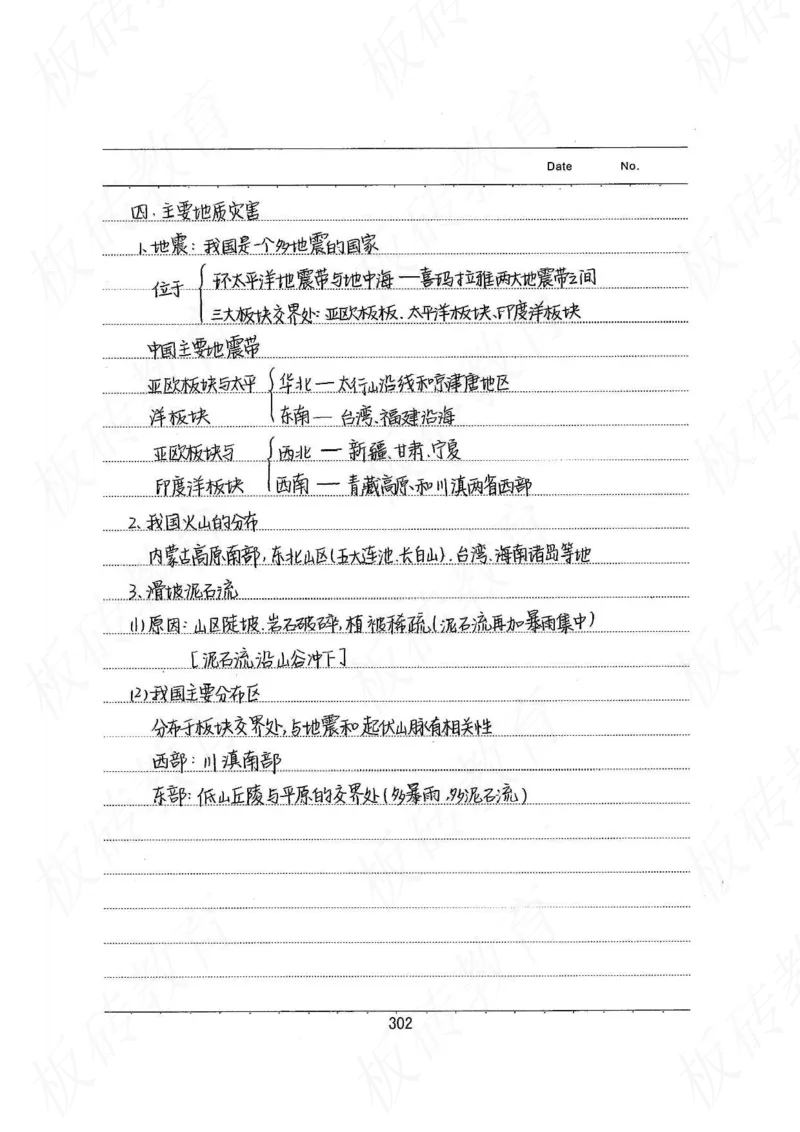 Date No.
四.主要地质灾害
1、地震：我国是一个多地震的国家
位于
环太平洋地震带与地中海——喜玛拉雅两大地震带之间
三大板块交界处：亚欧板板、太平洋板块、印度洋板块
中国主要地震带
亚欧板块与太平洋板块
华北 — 太行山沿线和京津唐地区
东南 — 台湾、福建沿海
亚欧板块与印度洋板块
西北 — 新疆、甘肃、宁夏
西南 — 青藏高原、和川滇两省西部
2、我国火山的分布
内蒙古高原南部，东北山区(五大连池、长白山)、台湾、海南诸岛等地
3、滑坡泥石流
(1)原因：山区陡坡、岩石破碎，植被稀疏(泥石流再加暴雨集中)
[泥石流沿山谷冲下]
(2)我国主要分布区
分布于板块交界处，与地震和起伏山脉有相关性
西部：川滇南部
东部：低山丘陵与平原的交界处(多暴雨，多泥石流)
302
板砖教育